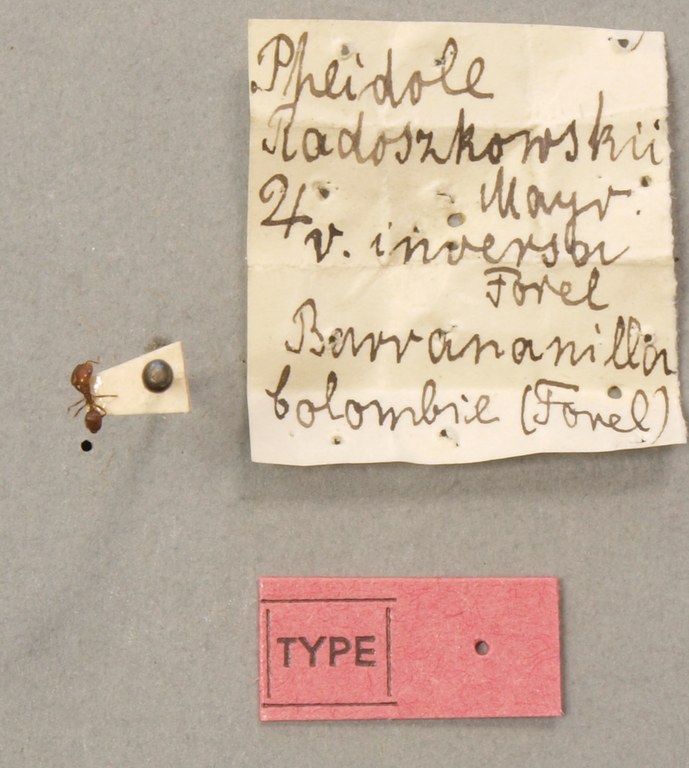 Pheidole
Radoszkowskii
♃ Mayr.
v. inversa
Forel
Barrananilla
Colombie (Forel)
TYPE